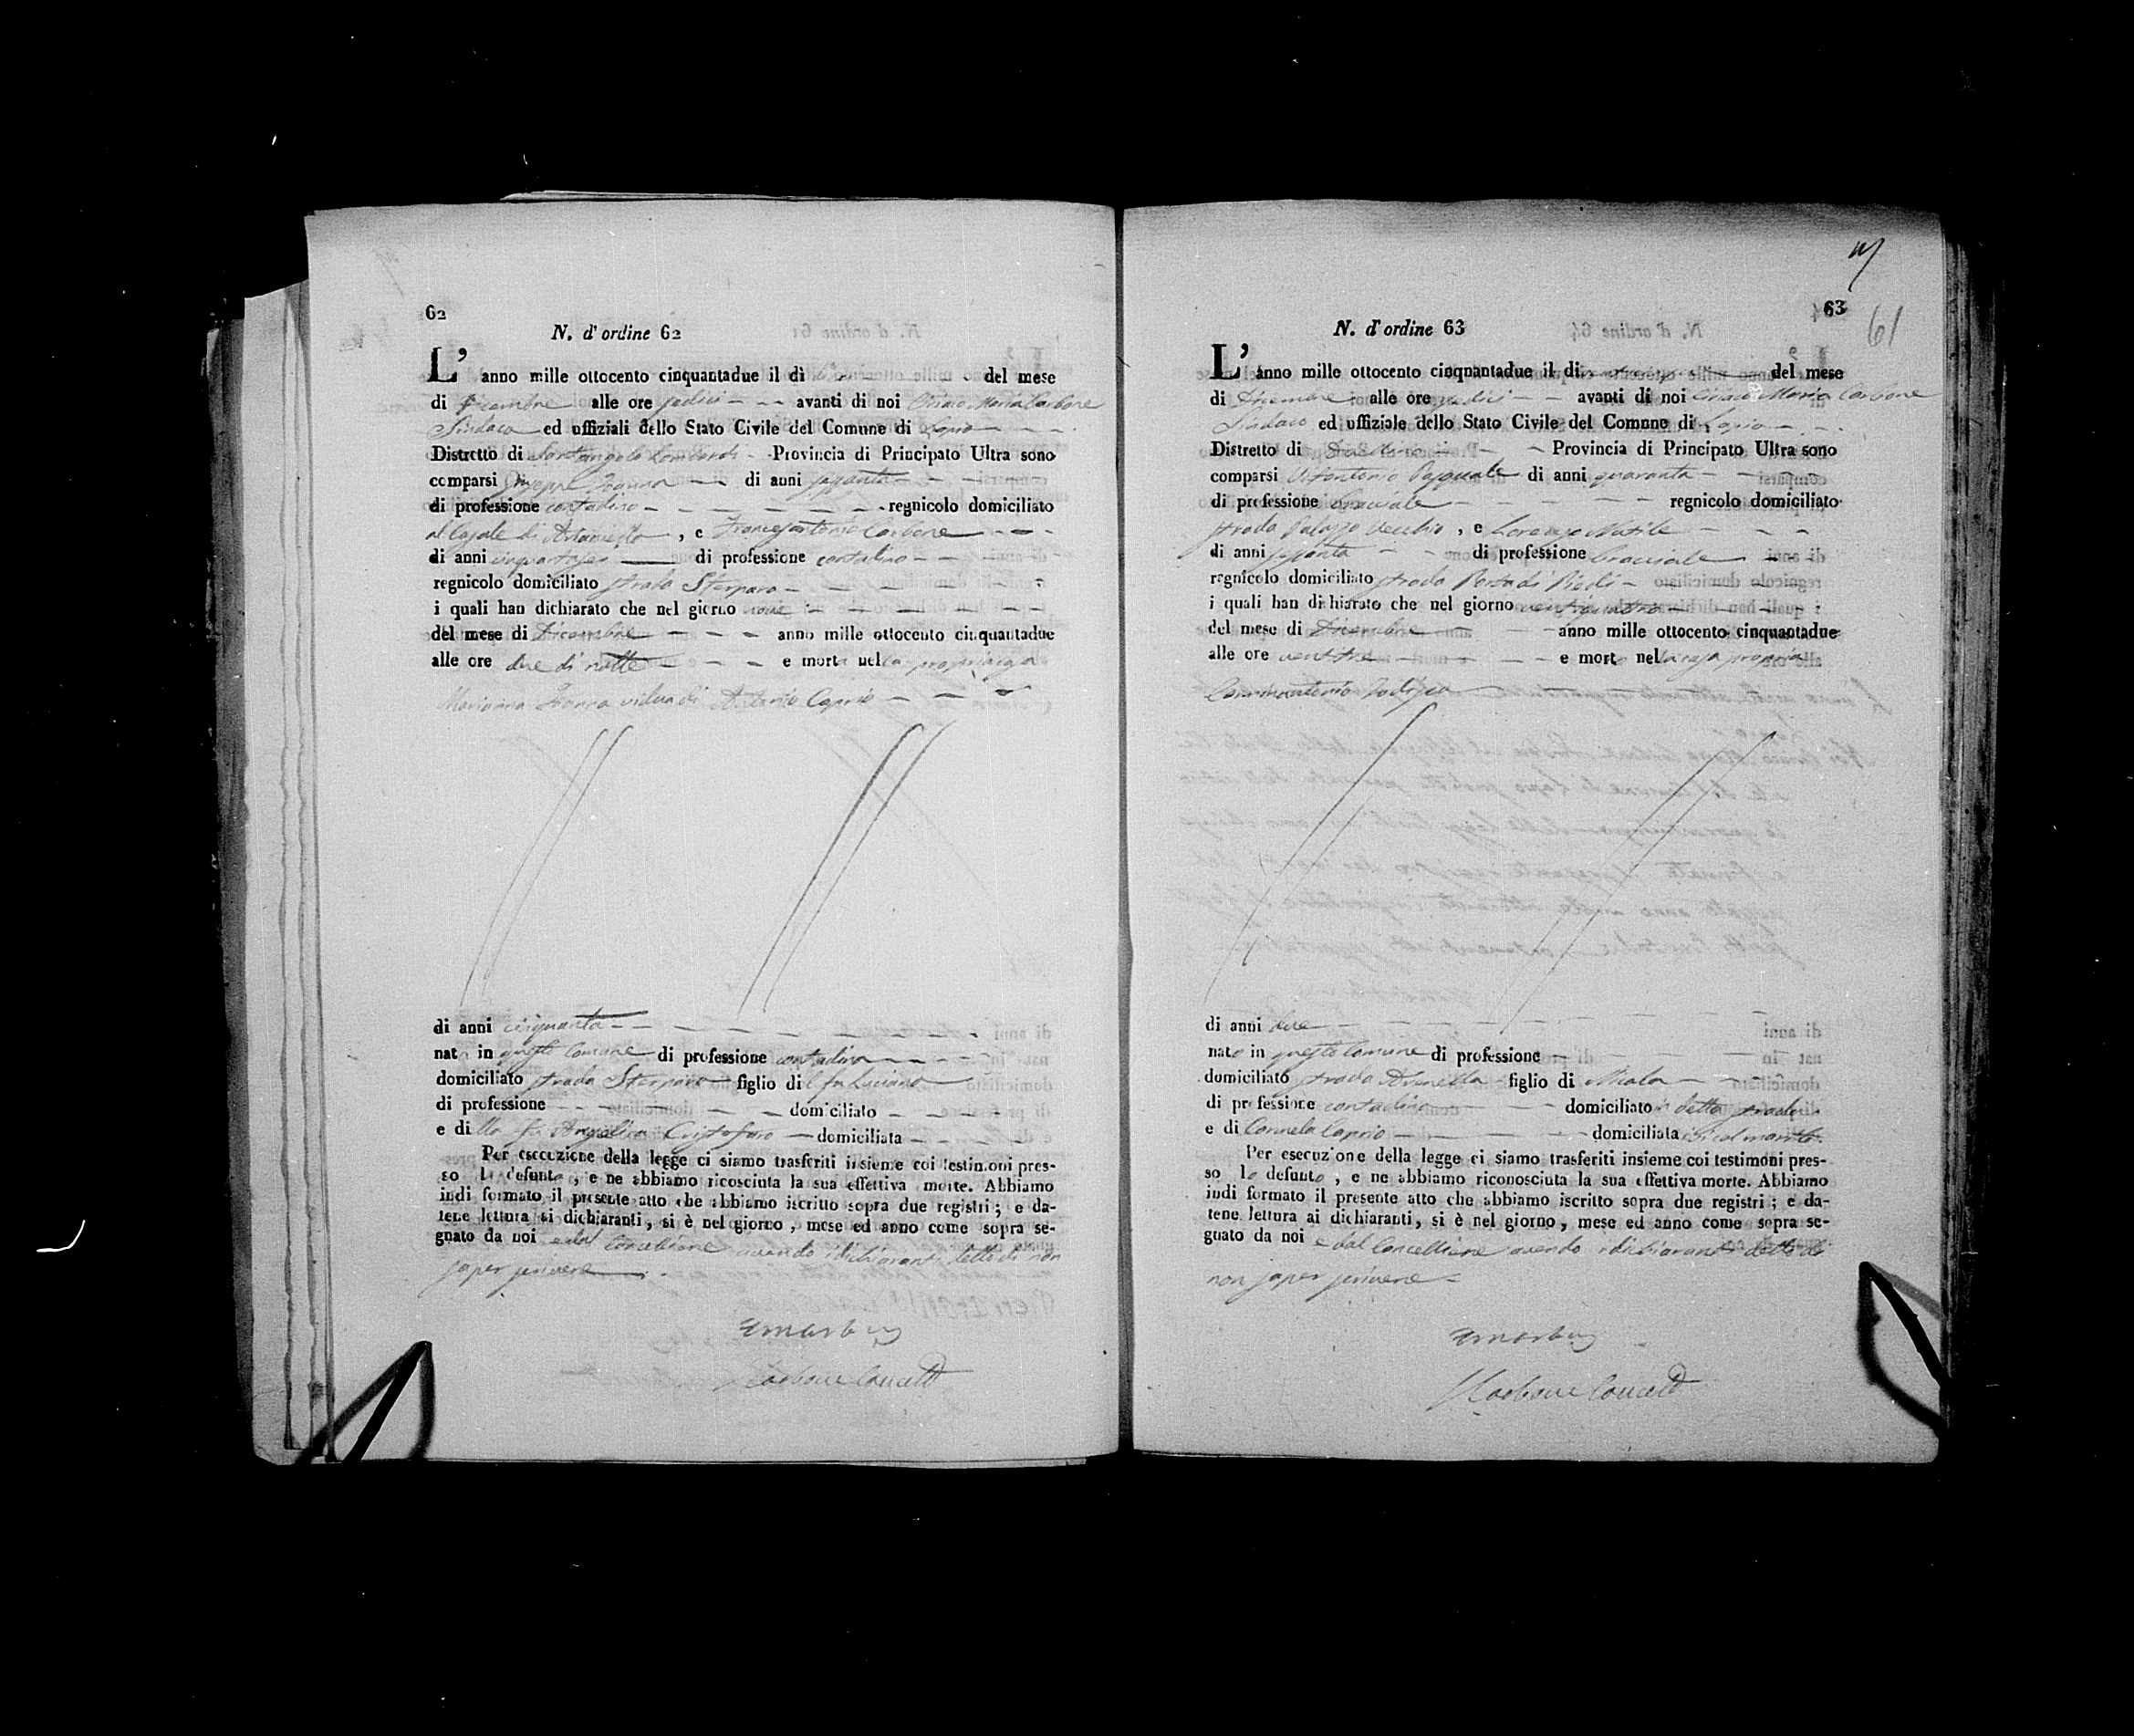 62
N. d'ordine 62
L'anno mille ottocento cinquantadue il dì del mese
di Dicembre alle ore sedici avanti di noi Ciriaco Maria Carbone
Sindaco ed uffiziali dello Stato Civile del Comune di Lapio
Distretto di Santangelo Lombardi Provincia di Principato Ultra sono
comparsi Giuseppe di anni sessanta
di professione contadino regnicolo domiciliato
al Casale di , e Francesantonio Carbone
di anni cinquantasei di professione contadino
regnicolo domiciliato strada Sterparo
i quali han dichiarato che nel giorno nove
del mese di Dicembre anno mille ottocento cinquantadue
alle ore due di notte e morta nella propria casa
Marianna vidua di Antonio Caprio
di anni cinquanta
nata in questo Comune di professione contadina
domiciliato strada Sterparo figlio di l fu Luciano
di professione domiciliato
e di lla fu Angelica Cristofaro domiciliata
Per esecuzione della legge ci siamo trasferiti insieme coi testimoni pres-
so la defunta, e ne abbiamo riconosciuta la sua effettiva morte. Abbiamo
indi formato il presente atto che abbiamo iscritto sopra due registri; e da-
tene lettura ai dichiaranti, si è nel giorno, mese ed anno come sopra se-
gnato da noi e dal Cancelliere avendo i dichiaranti detto di non
saper scrivere
Carbone Cancell
63
61
N. d'ordine 63
L'anno mille ottocento cinqnantadue il dì del mese
di Dicembre alle ore sedici avanti di noi Ciriaco Maria Carbone
Sindaco ed uffiziale dello Stato Civile del Comune di Lapio
Distretto di Provincia di Principato Ultra sono
comparsi Vitantonio Pasquale di anni quaranta
di professione bracciale regnicolo domiciliato
strada Palazzo Vecchio, e Lorenzo Mutile
di anni sessanta di professione bracciale
regnicolo domiciliato strada Porta di Piedi
i quali han dichiarato che nel giorno ventiquattro
del mese di Dicembre anno mille ottocento cinquantadue
alle ore ventitre e morto nella casa propria
Carminantonio
di anni due
nato in questo Comune di professione
domiciliato strada figlio di Nicola
di professione contadino domiciliato in detta strada
e di Carmela Caprio domiciliata ivi col marito
Per esecuzione della legge ci siamo trasferiti insieme coi testimoni pres-
so lo defunto, e ne abbiamo riconosciuta la sua effettiva morte. Abbiamo
indi formato il presente atto che abbiamo iscritto sopra due registri; e da-
tene lettura ai dichiaranti, si è nel giorno, mese ed anno come sopra se-
gnato da noi e dal Cancelliere avendo i dichiaranti detto di
non saper scrivere
Carbone Cancell